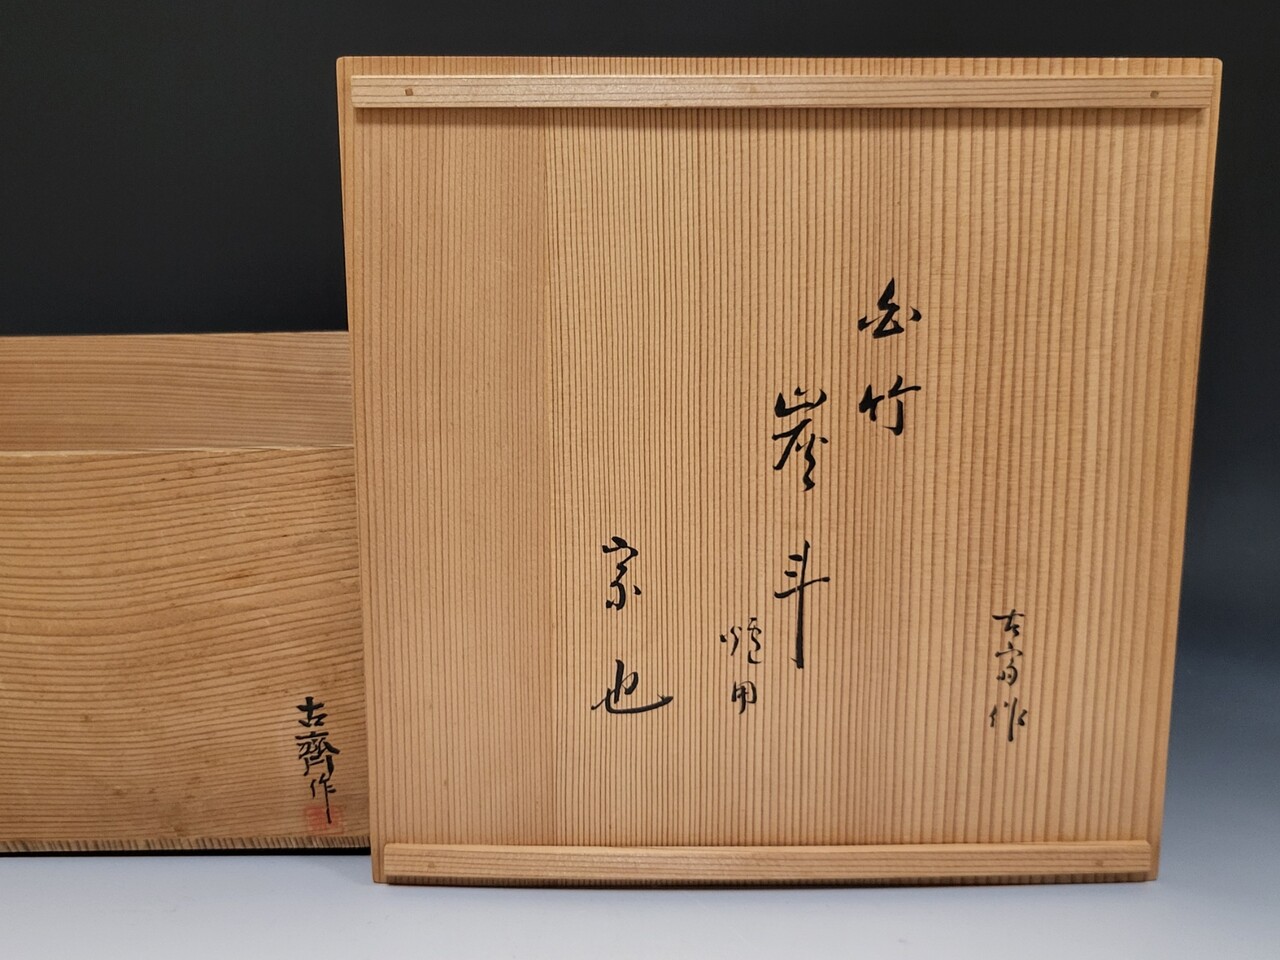 古斎作
白竹
炭斗
炉用
宗也
古齊作